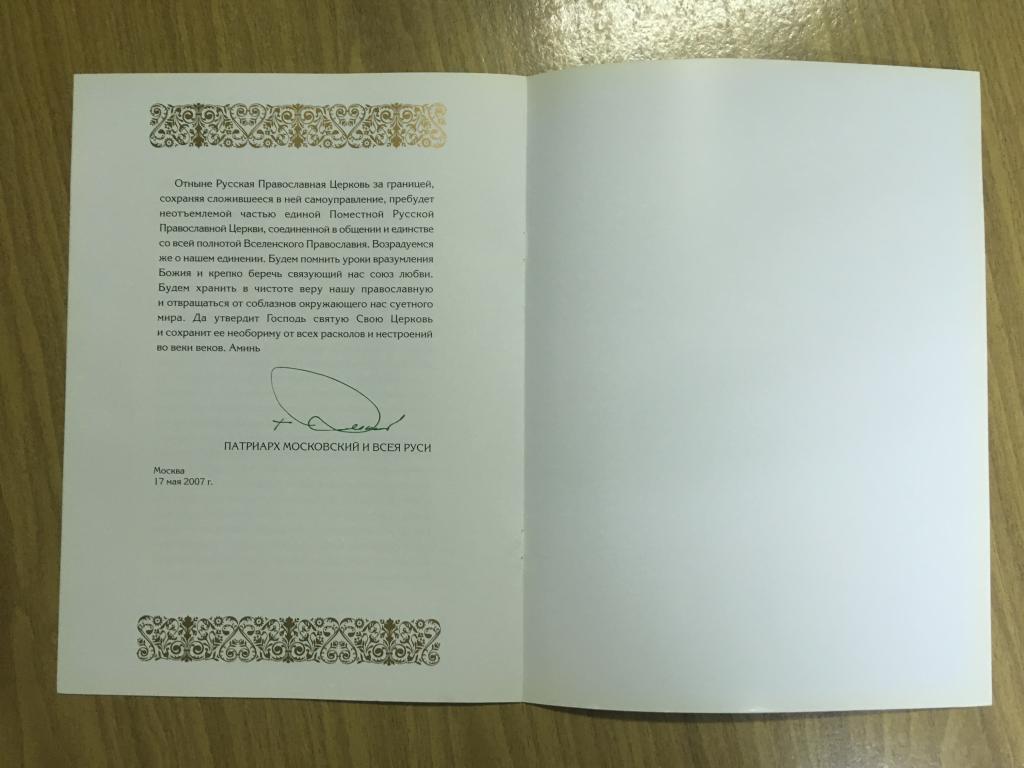 Отныне Русская Православная Церковь за границей,
сохраняя сложившееся в ней самоуправление, пребудет
неотъемлемой частью единой Поместной Русской
Православной Церкви, соединенной в общении и единстве
со всей полнотой Вселенского Православия. Возрадуемся
же о нашем единении. Будем помнить уроки вразумления
Божия и крепко беречь связующий нас союз любви.
Будем хранить в чистоте веру нашу православную
и отвращаться от соблазнов окружающего нас суетного
мира. Да утвердит Господь святую Свою Церковь
и сохранит ее необориму от всех расколов и нестроений
во веки веков. Аминь
ПАТРИАРХ МОСКОВСКИЙ И ВСЕЯ РУСИ
Москва
17 мая 2007 г.